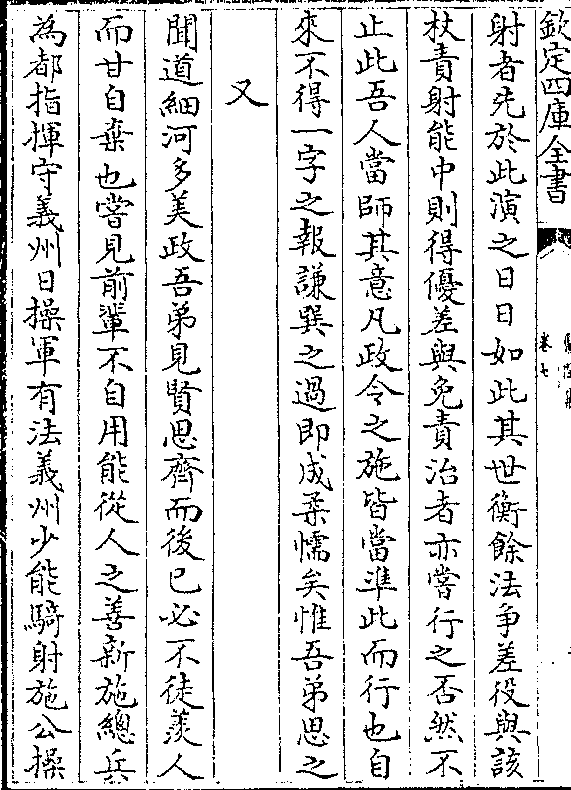 欽定四庫全書
卷七
射者先於此演之日日如此其世衡餘法爭差役與該
杖責射能中則得優差與免責治者亦嘗行之否然不
止此吾人當師其意凡政令之施皆當準此而行也自
來不得一字之報謙巽之過即成柔懦矣惟吾弟思之
又
聞道細河多美政吾弟見賢思齊而後已必不徒羨人
而甘自棄也嘗見前輩不自用能從人之善新施總兵
為都指揮守義州日操軍有法義州少能騎射施公操